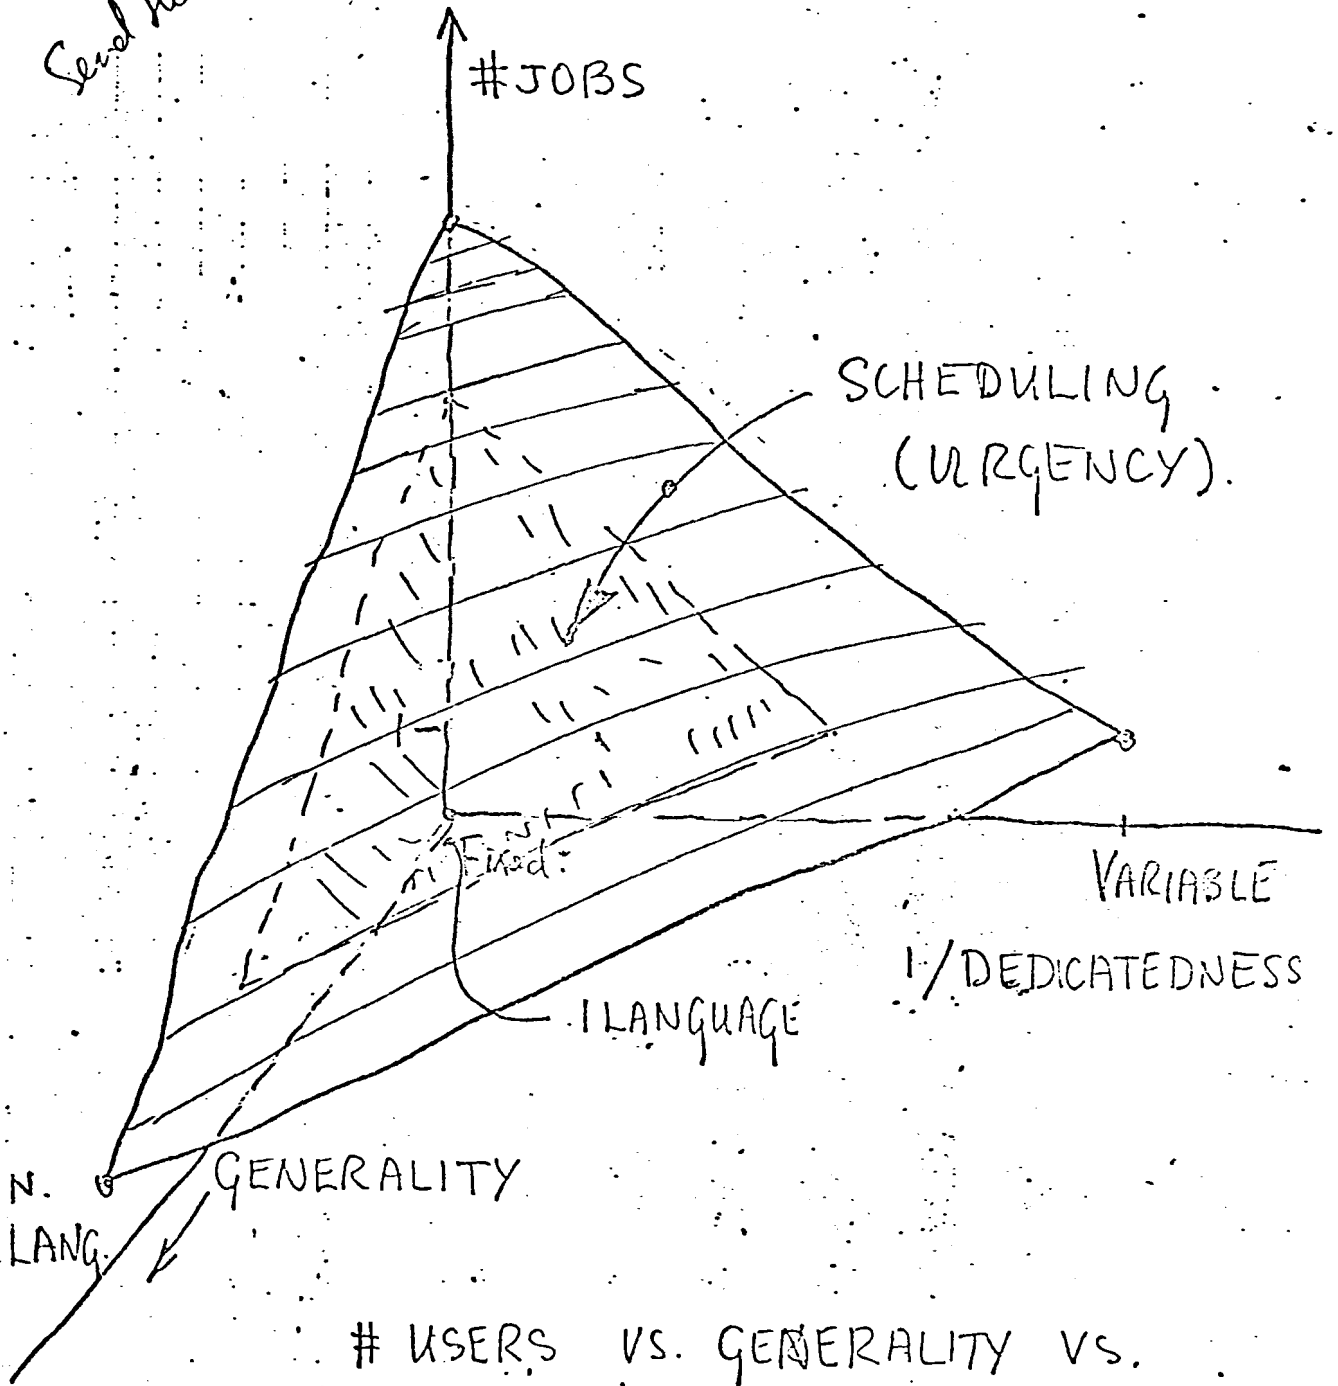 Send
#JOBS
SCHEDULING
(URGENCY).
Fixed:
VARIABLE
1/DEDICATEDNESS
1 LANGUAGE
GENERALITY
N.
LANG.
# USERS VS. GENERALITY VS.